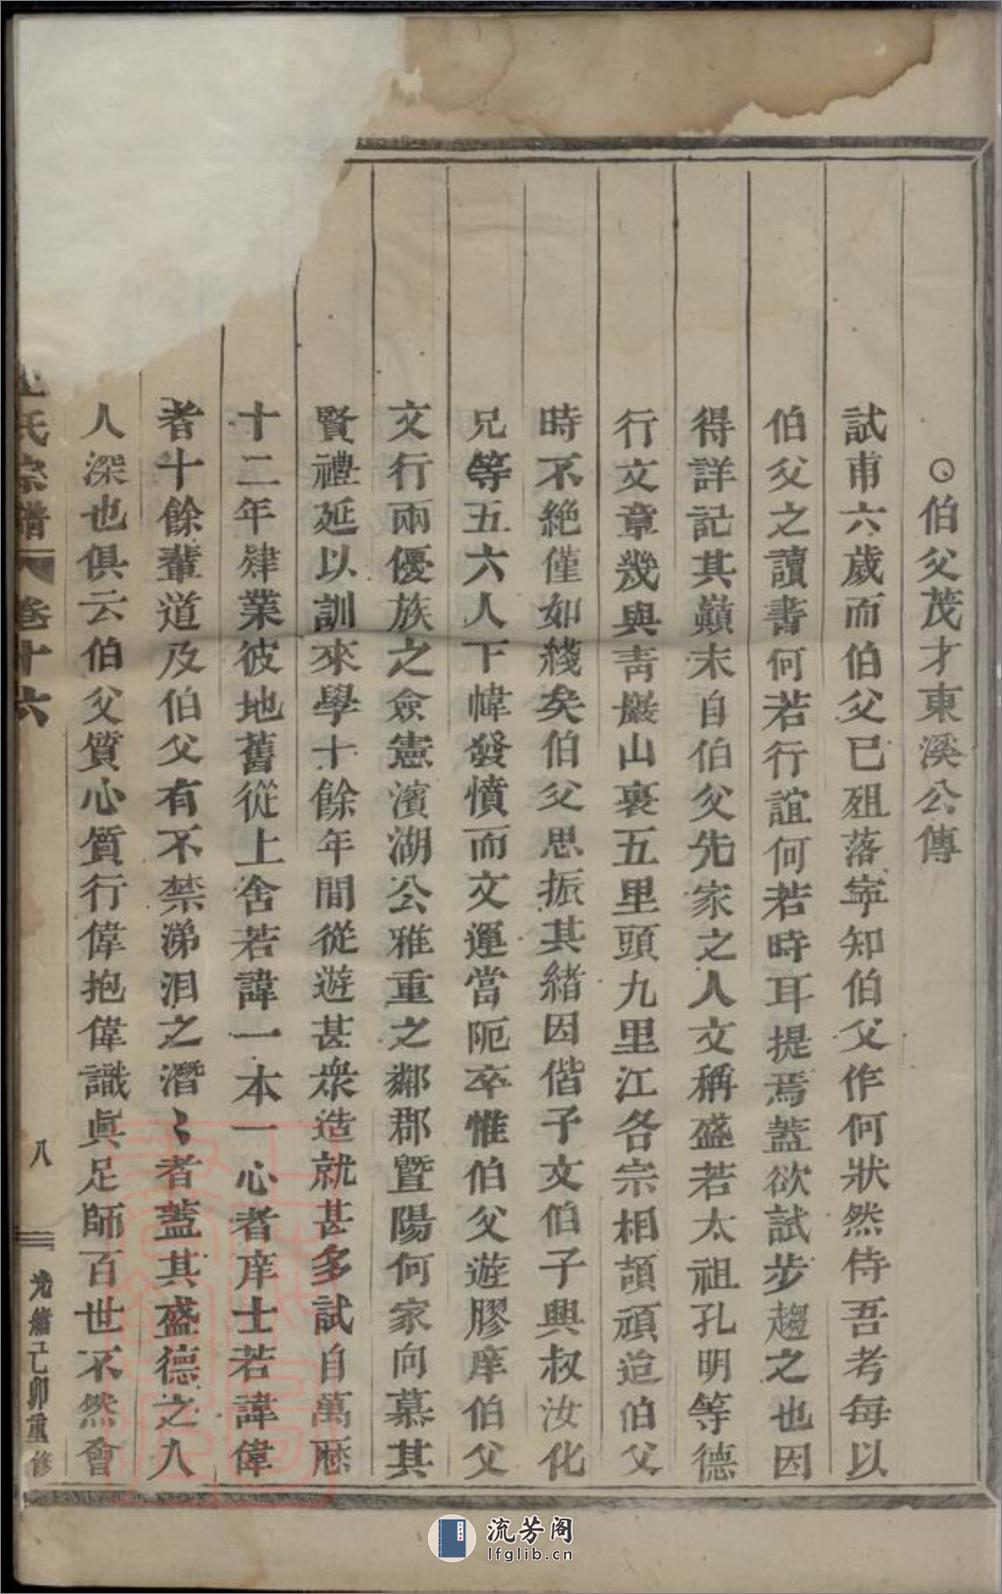 ○伯父茂才東溪公傳
試甫六歲而伯父已殂落寧知伯父作何狀然侍吾考每以
伯父之讀書何若行誼何若時耳提焉蓋欲試步趨之也因
得詳記其巔末自伯父先家之人文稱盛若太祖孔明等德
行文章幾與靑巖山裏五里頭九里江各宗相頡頏迨伯父
時不絶僅如綫矣伯父思振其緖因偕子文伯子興叔汝化
兄等五六人下幃發憤而文運當阨卒惟伯父遊膠庠伯父
文行兩優族之僉憲濱湖公雅重之鄰郡暨陽何家向慕其
賢禮延以訓來學十餘年間從遊甚衆造就甚多試自萬曆
十二年肄業彼地舊從上舍若諱一本一心者庠士若諱偉
者十餘輩道及伯父有不禁涕泪之潛〻者蓋其盛德之入
人深也俱云伯父質心質行偉抱偉識眞足師百世不然會
氏宗譜 卷十六 八 光緖己卯重修
流芳阁
lfglib.cn